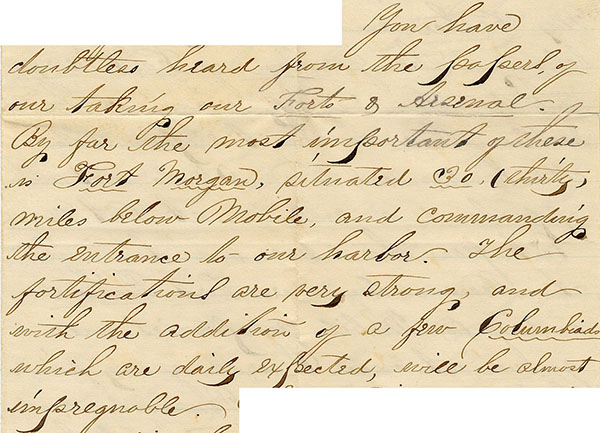 You have
doubtless heard from the papers, of
our taking our Forts & Arsenal.
By far the most important of these
is Fort Morgan, situated 30, (thirty,
miles below Mobile, and commanding
the entrance to our harbor. The
fortifications are very strong, and
with the addition of a few Columbiads
which are daily expected, will be almost
impregnable.